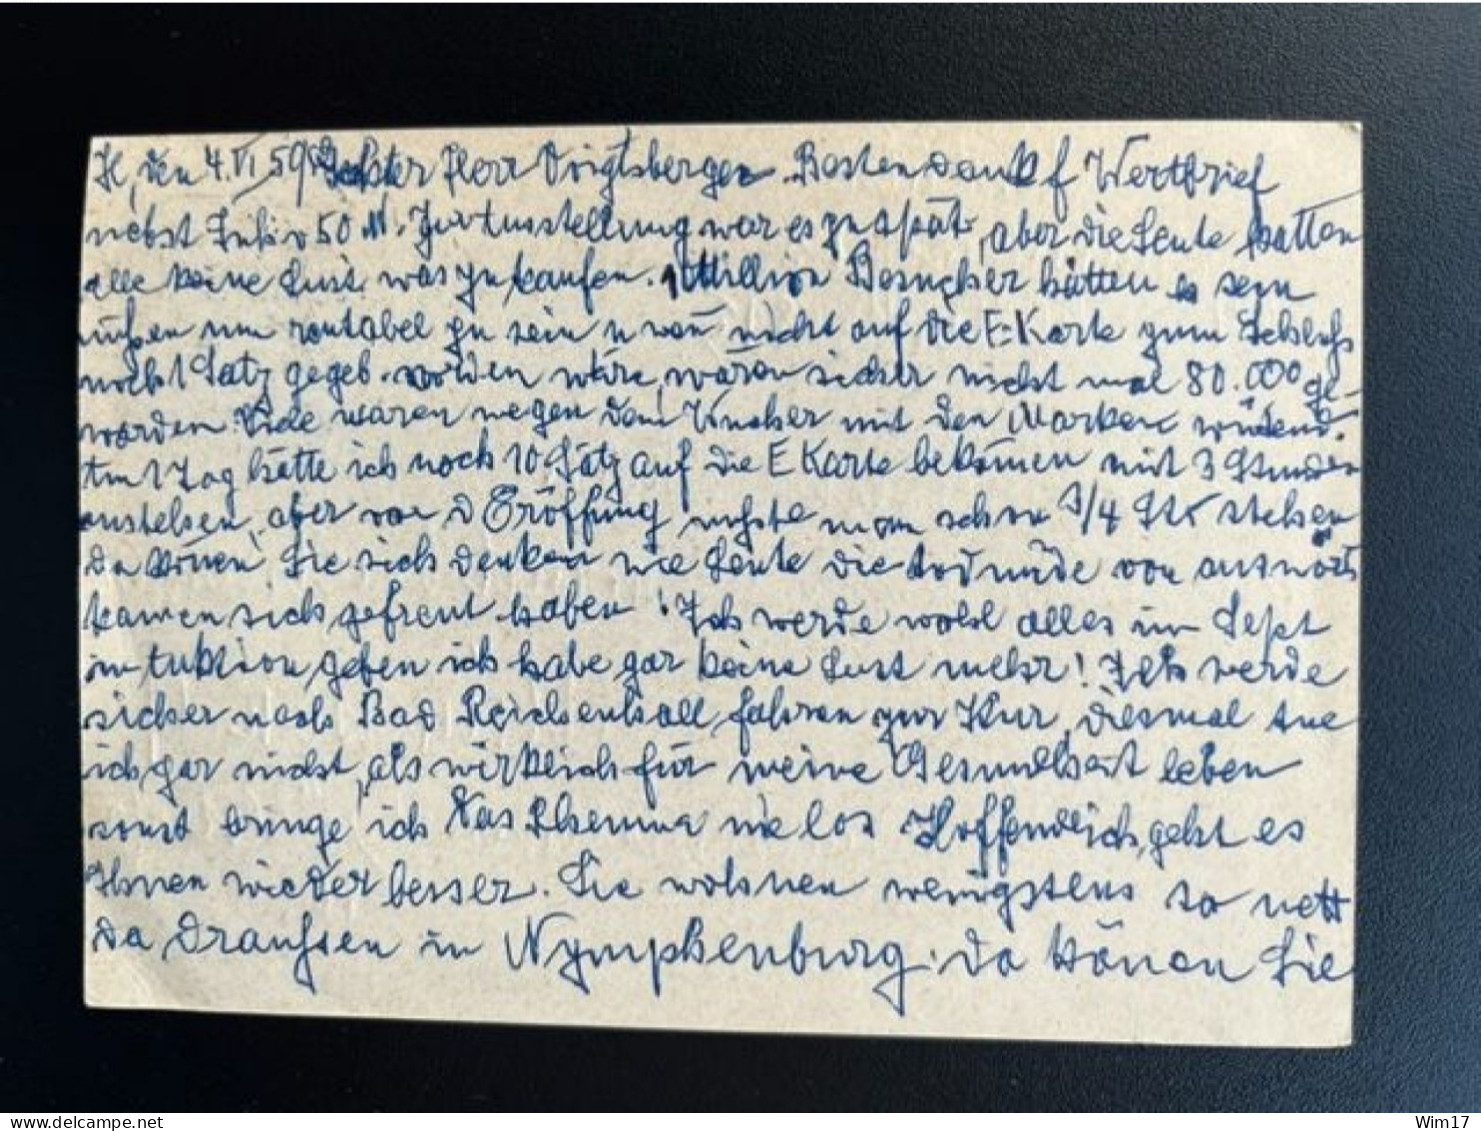 H, den 4.VI 59 Herr Voigtsberger. Besten Dank f Wertbrief
nebst v 50 M. Zur Ausstellung war es zu spät, aber die Leute hatten
alle keine Lust was zu kaufen. 1 Million Besucher hätten es sein
müßen um rentabel zu sein u wen nicht auf die E-Karte zum Schluß
noch 1 Satz gegeb. worden wäre, wären sicher nicht mal 80.000 ge-
worden. Viele waren wegen dem Wucher mit den Marken wütend.
Am 1 Tag hätte ich noch 10 Sätz auf die E Karte bekomen mit 3 Stunden
anstehen, aber vor d Eröffung mußte man schon 3/4 Std stehen
Da könen Sie sich denken wie Leute die todmüde von auswärts
kamen sich gefreut haben! Ich werde wohl alles im Sept
in Auktion geben ich habe gar keine Lust mehr! Ich werde
sicher nach Bad Reichenhall fahren zur Kur, diesmal tue
ich gar nichts, als wirklich für meine Gesundheit leben
sonst bringe ich das Rheuma nie los Hoffendlich geht es
Ihnen wieder besser. Sie wohnen wenigstens so nett
da draußen in Nymphenburg. da könen Sie
Wim17